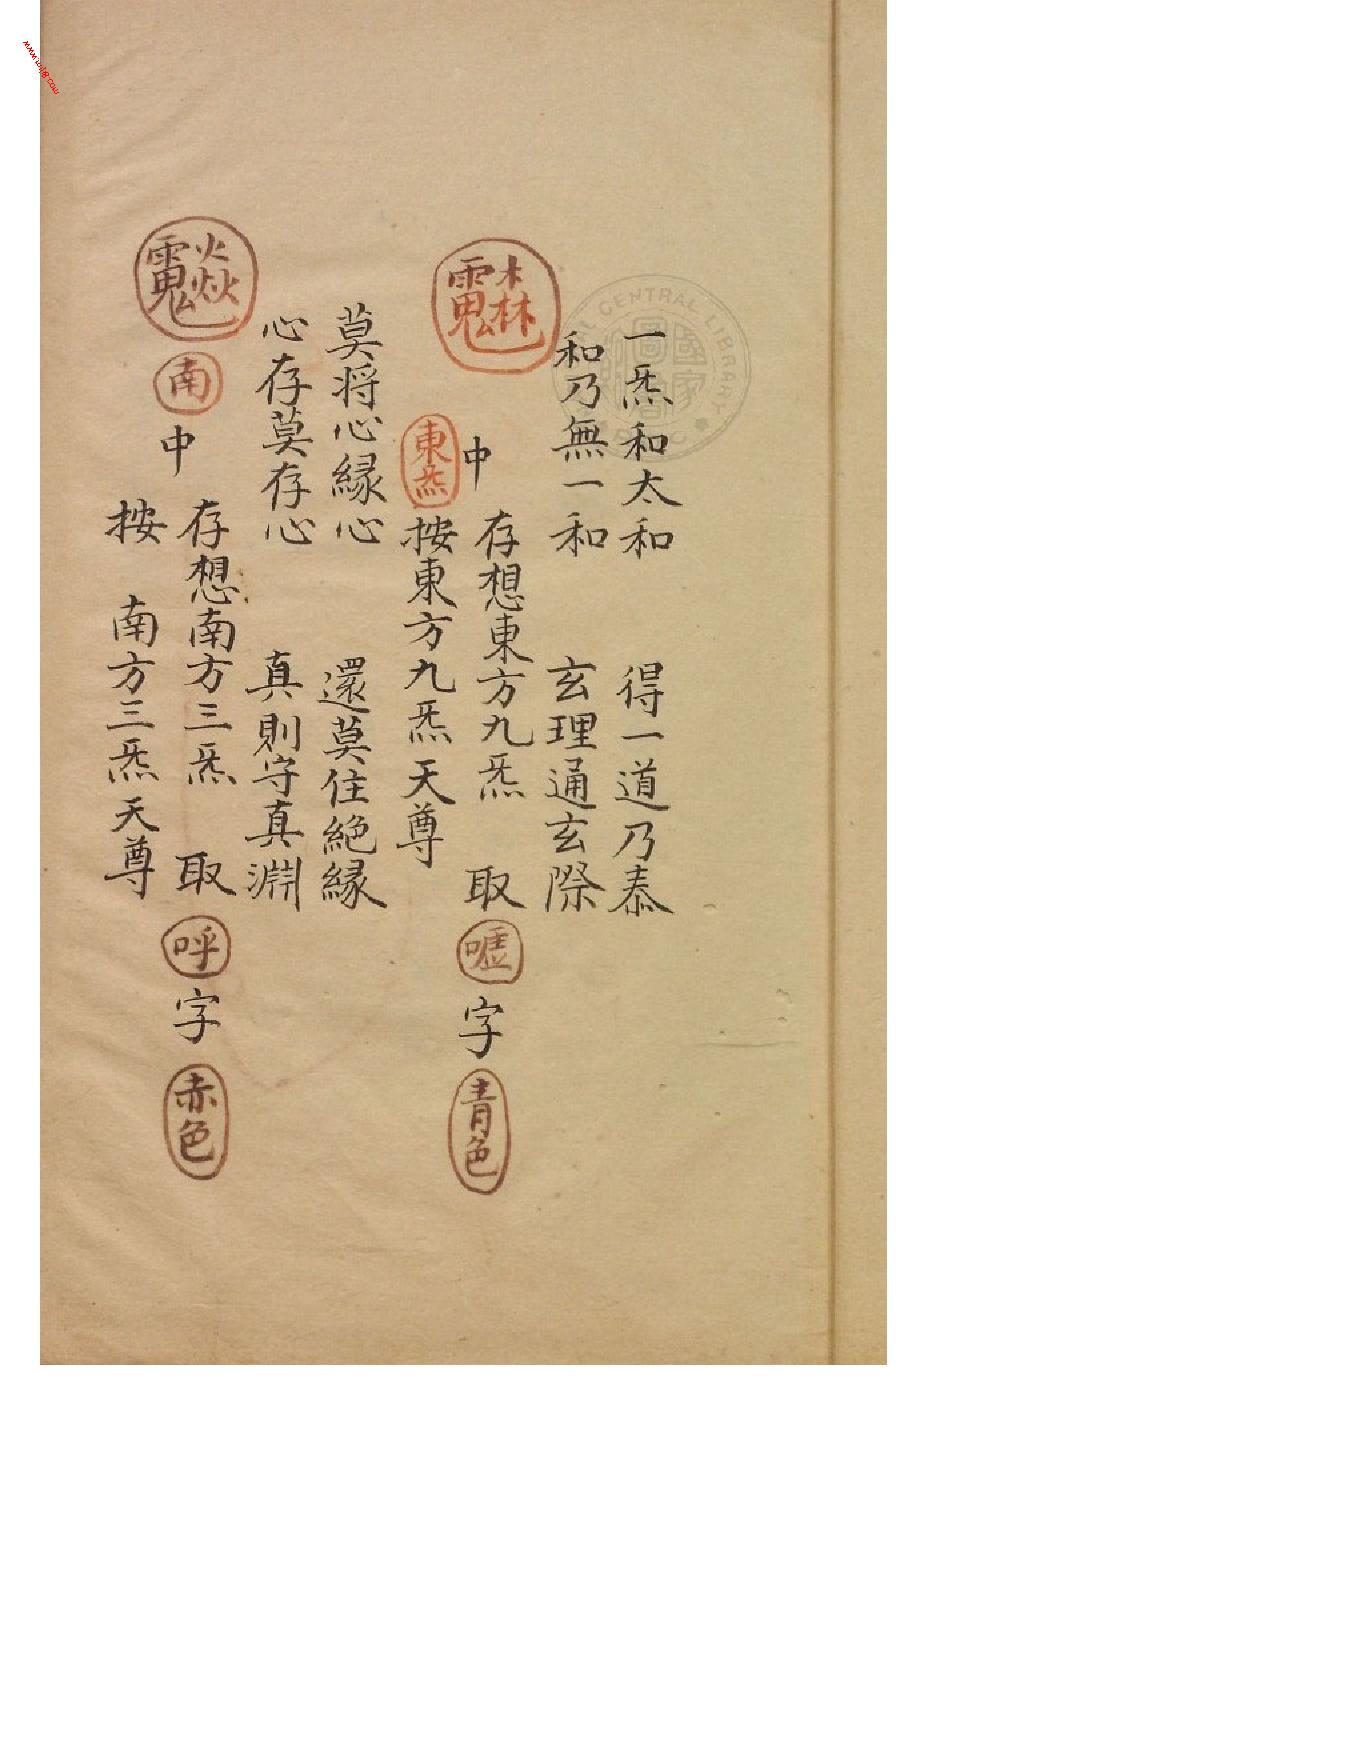 一炁和太和　得一道乃泰
和乃無一和　玄理通玄際
中　存想東方九炁　取
嘘
字
青色
東炁
按東方九炁天尊
莫将心縁心　還莫住絕縁
心存莫存心　真則守真淵
南
中
存想南方三炁　取
呼
字
赤色
按　南方三炁天尊
CENTRAL LIBRARY